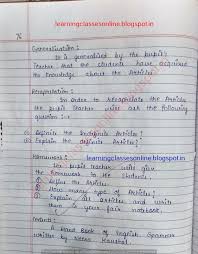 learningclassesonline.blogspot.in
76
Generalisation :
It is generalized by the pupil
Teacher that the students have acquired
the knowledge about the Articles.
Recapitulation :
In order to recapitulate the Article
the pupil Teacher will ask the following
question :-
1) Define the Indefinite Articles?
2) Explain the definite Articles?
learningclassesonline.blogspot.in
Homework :
The pupil teacher will give
the homework to the students
1) Define the Articles.
2) How many type of Articles?
3) Explain all articles and write
them is your fair notebook.
A Hand Book of English Grammar
written by Neena Kaushal.